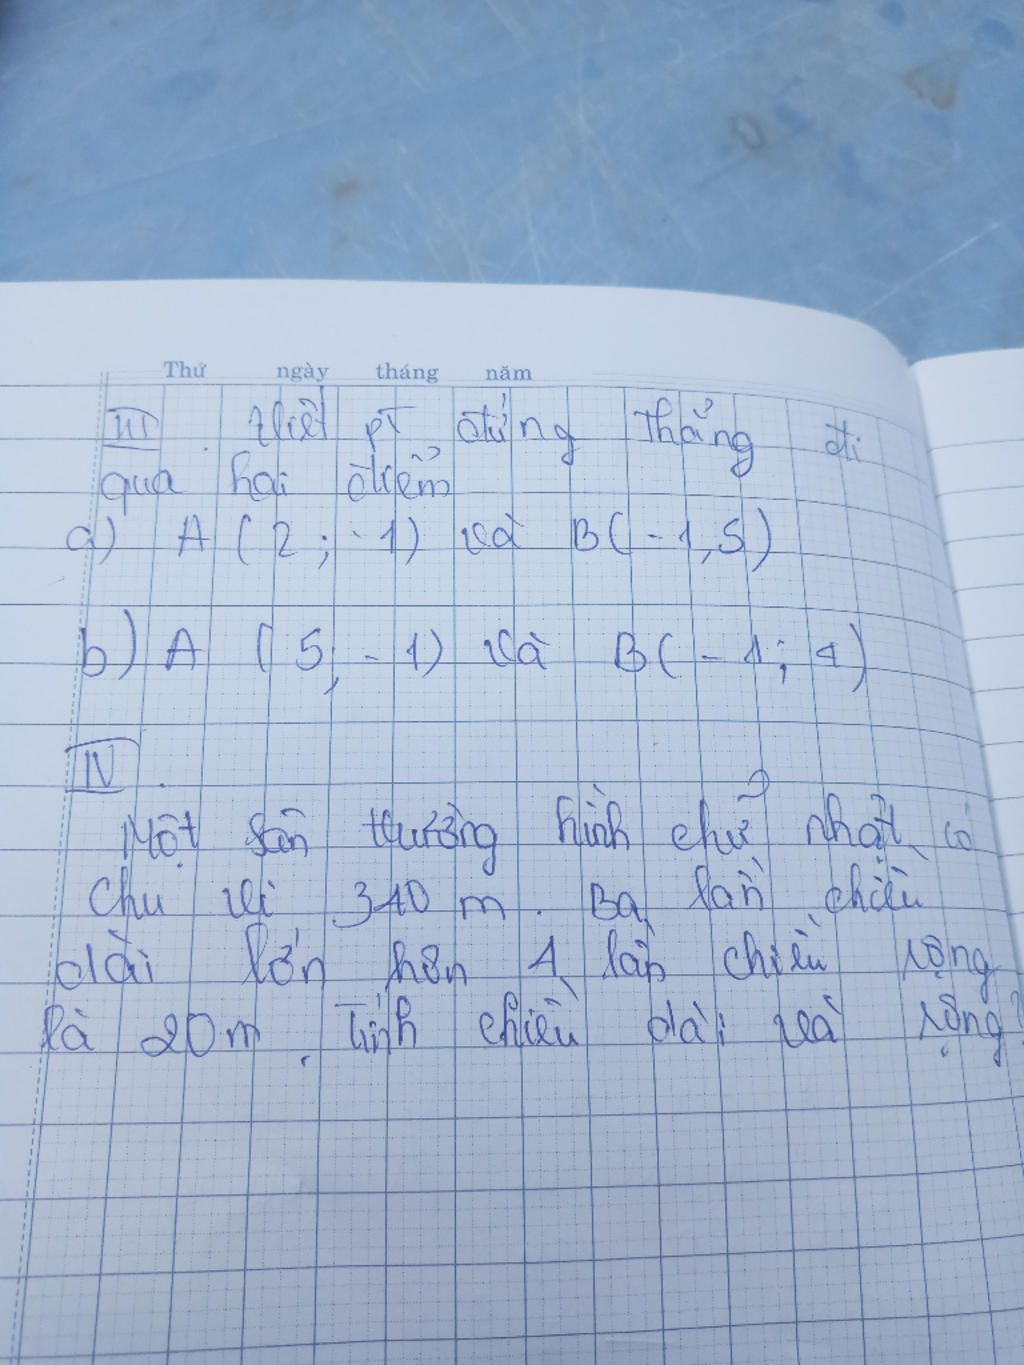 Thứ ngày tháng năm
III. Viết pt đường thẳng đi
qua hai điểm
a) A (2; -1) và B(-1,5)
b) A (5, -1) và B(-1; 4)
IV.
Một sân trường hình chữ nhật có
chu vi 340 m. Ba lần chiều
dài lớn hơn 4 lần chiều rộng
là 20m. Tính chiều dài và rộng?